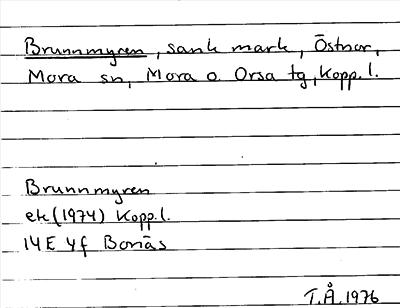 Brunnmyren, sank mark, Östnor,
Mora sn, Mora o Orsa tg, Kopp. l.
Brunnmyren
ek (1974) Kopp. l.
14E 4f Bonäs
T.Å. 1976